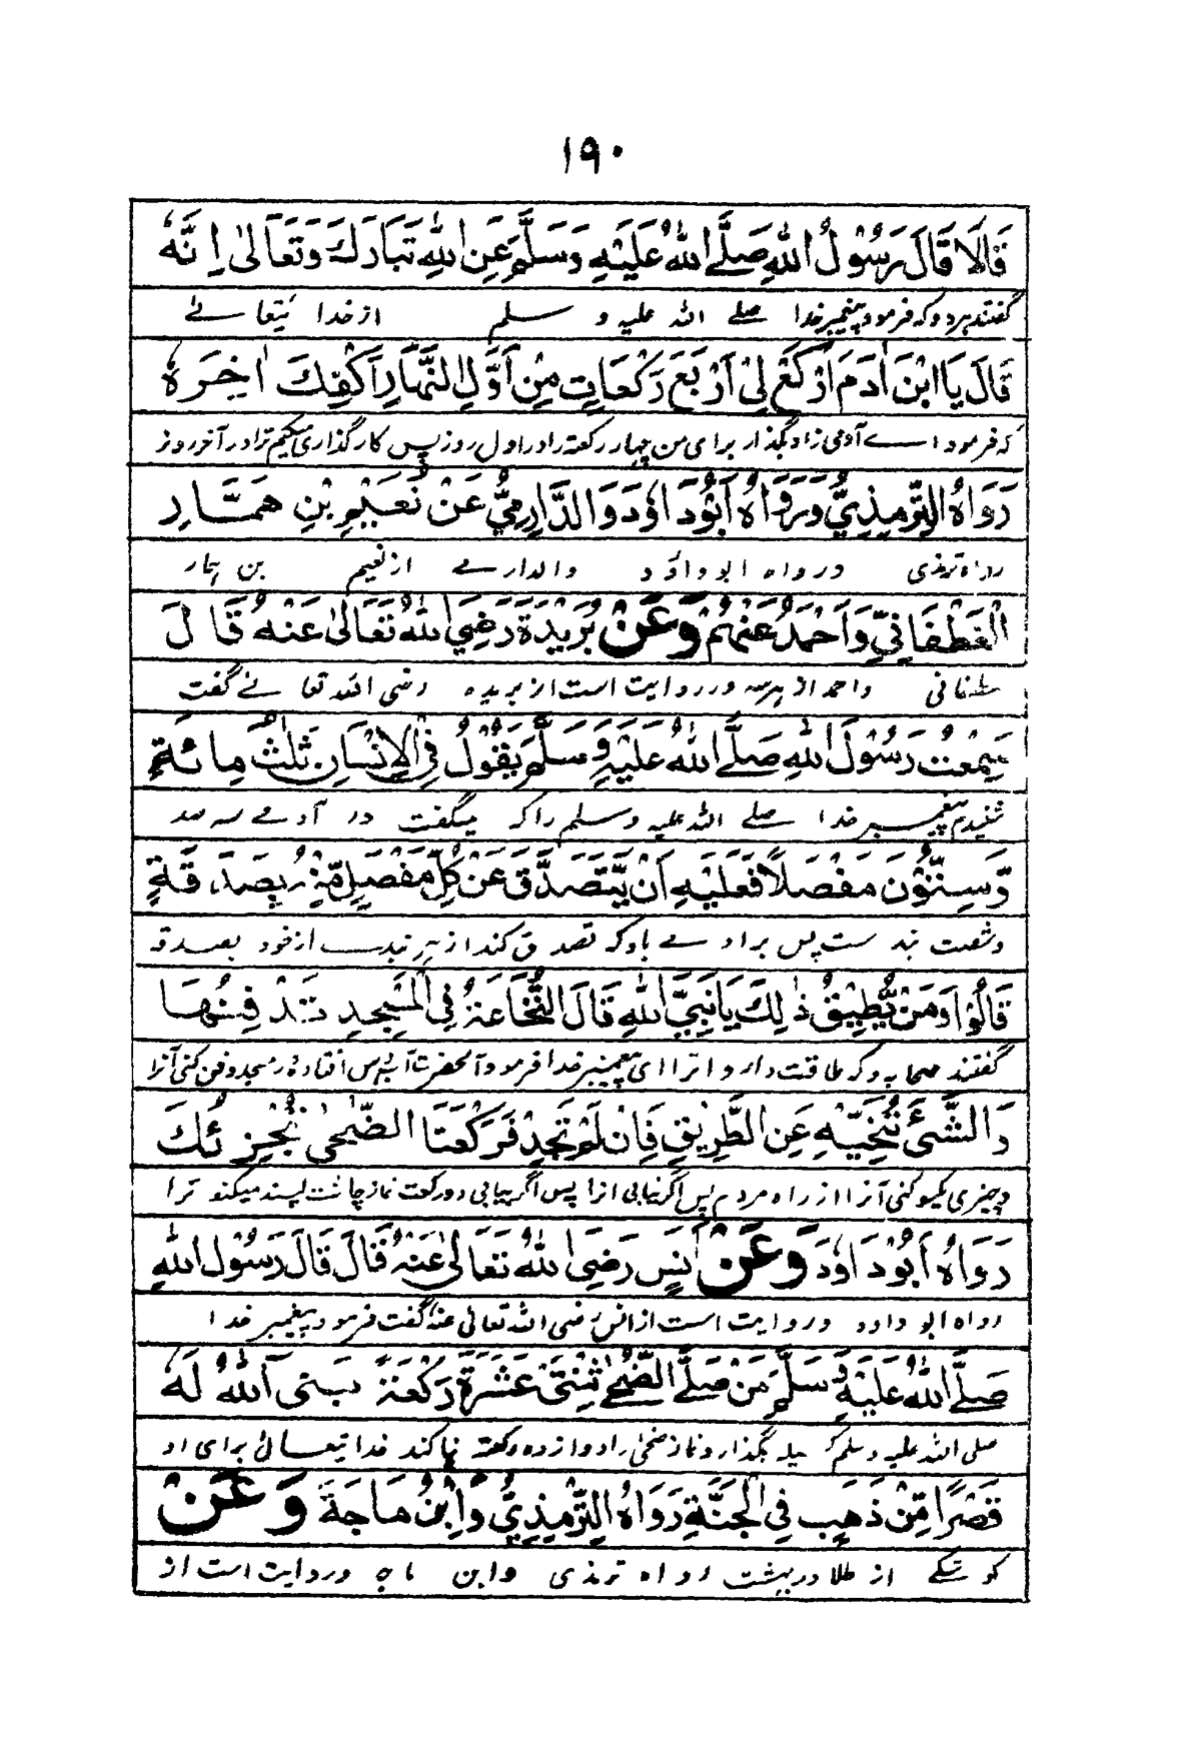 ١٩٠
قَالَا قَالَ رَسُوْلُ اللّٰهِ صَلَّے اللّٰهُ عَلَيْهِ وَسَلَّمَ عَنِ اللّٰهِ تَبَارَكَ وَتَعَالٰى اِنَّهٗ
گفتند ہردو کہ فرمود پیغمبر خدا صلے اللہ علیہ و سلم از خدا تیعا لے
قَالَ يَا ابْنَ اٰدَمَ اَرْكَعْ لِيْ اَرْبَعَ رَكْعَاتٍ مِنْ اَوَّلِ النَّهَارِ اَكْفِكَ اٰخِرَهٗ
کہ فرمود اے آدمی زاد بگذار برای من چہار رکعتہ را در اول روز پس کار گذاری میکنم ترا در آخر روز
رَوَاهُ التِّرْمِذِيُّ وَرَوَاهُ اَبُوْدَاوٗدَ وَالدَّارِمِيُّ عَنْ نُعَيْمِ بْنِ هَمَّارِ
رواہ ترمذی و رواہ ابو داؤد والدارمے از نعیم بن ہمار
الْغَطْفَانِيِّ وَاَحْمَدُ عَنْهُمْ وَعَنْ بُرَيْدَةَ رَضِيَ اللّٰهُ تَعَالٰى عَنْهُ قَالَ
واحمد از ہرسہ و روایت است از بریدہ رضی اللہ تعا لے گفت
سَمِعْتُ رَسُوْلَ اللّٰهِ صَلَّے اللّٰهُ عَلَيْهِ وَسَلَّمَ يَقُوْلُ فِي الْاِنْسَانِ ثَلٰثُ مِائَةٍ
شنیدم پیغمبر خدا صلے اللہ علیہ وسلم را کہ میگفت در آدمے سہ صد
وَّسِتُّوْنَ مَفْصَلًا فَعَلَيْهِ اَنْ يَّتَصَدَّقَ عَنْ كُلِّ مَفْصَلٍ مِّنْهُ بِصَدَقَةٍ
وشصت بند ست پس براد مے باو کہ تصدق کند از ہر بند از خود بصدقہ
قَالُوْا وَمَنْ يُّطِيْقُ ذٰلِكَ يَا نَبِيَّ اللّٰهِ قَالَ النُّخَاعَةُ فِي الْمَسْجِدِ تَدْفِنُهَا
گفتند صحابہ و کہ طاقت دارد اترا ای پیغمبر خدا فرمود آنحضرت آب افتادہ در مسجد دفن کنی آنرا
وَالشَّيْءُ تُنَحِّيْهِ عَنِ الطَّرِيْقِ فَاِنْ لَمْ تَجِدْ فَرَكْعَتَا الضُّحٰى تُجْزِئُكَ
وچیزی یکسو کنی آنرا از راہ مردم پس اگر نیابی انرا پس اگر نیابی دو رکعت نماز چاشت بسند میکند ترا
رَوَاهُ اَبُوْدَاوٗدَ وَعَنْ اَنَسٍ رَضِيَ اللّٰهُ تَعَالٰى عَنْهُ قَالَ قَالَ رَسُوْلُ اللّٰهِ
رواہ ابو داود و روایت است از انس رضی اللہ تعالی عنہ گفت فرمود پیغمبر خدا
صَلَّے اللّٰهُ عَلَيْهِ وَسَلَّمَ مَنْ صَلَّے الضُّحٰے ثِنْتَيْ عَشْرَةَ رَكْعَةً بَنٰى اللّٰهُ لَهٗ
صلی اللہ علیہ وسلم کہ بگذارد نماز ضحیٰ را دوازدہ رکعتہ بنا کند خدا تیعالیٰ برای او
قَصْرًا مِّنْ ذَهَبٍ فِي الْجَنَّةِ رَوَاهُ التِّرْمِذِيُّ وَابْنُ مَاجَةَ وَعَنْ
کوشکے از طلا در بہشت رواہ ترمذی وابن ماجہ و روایت است از